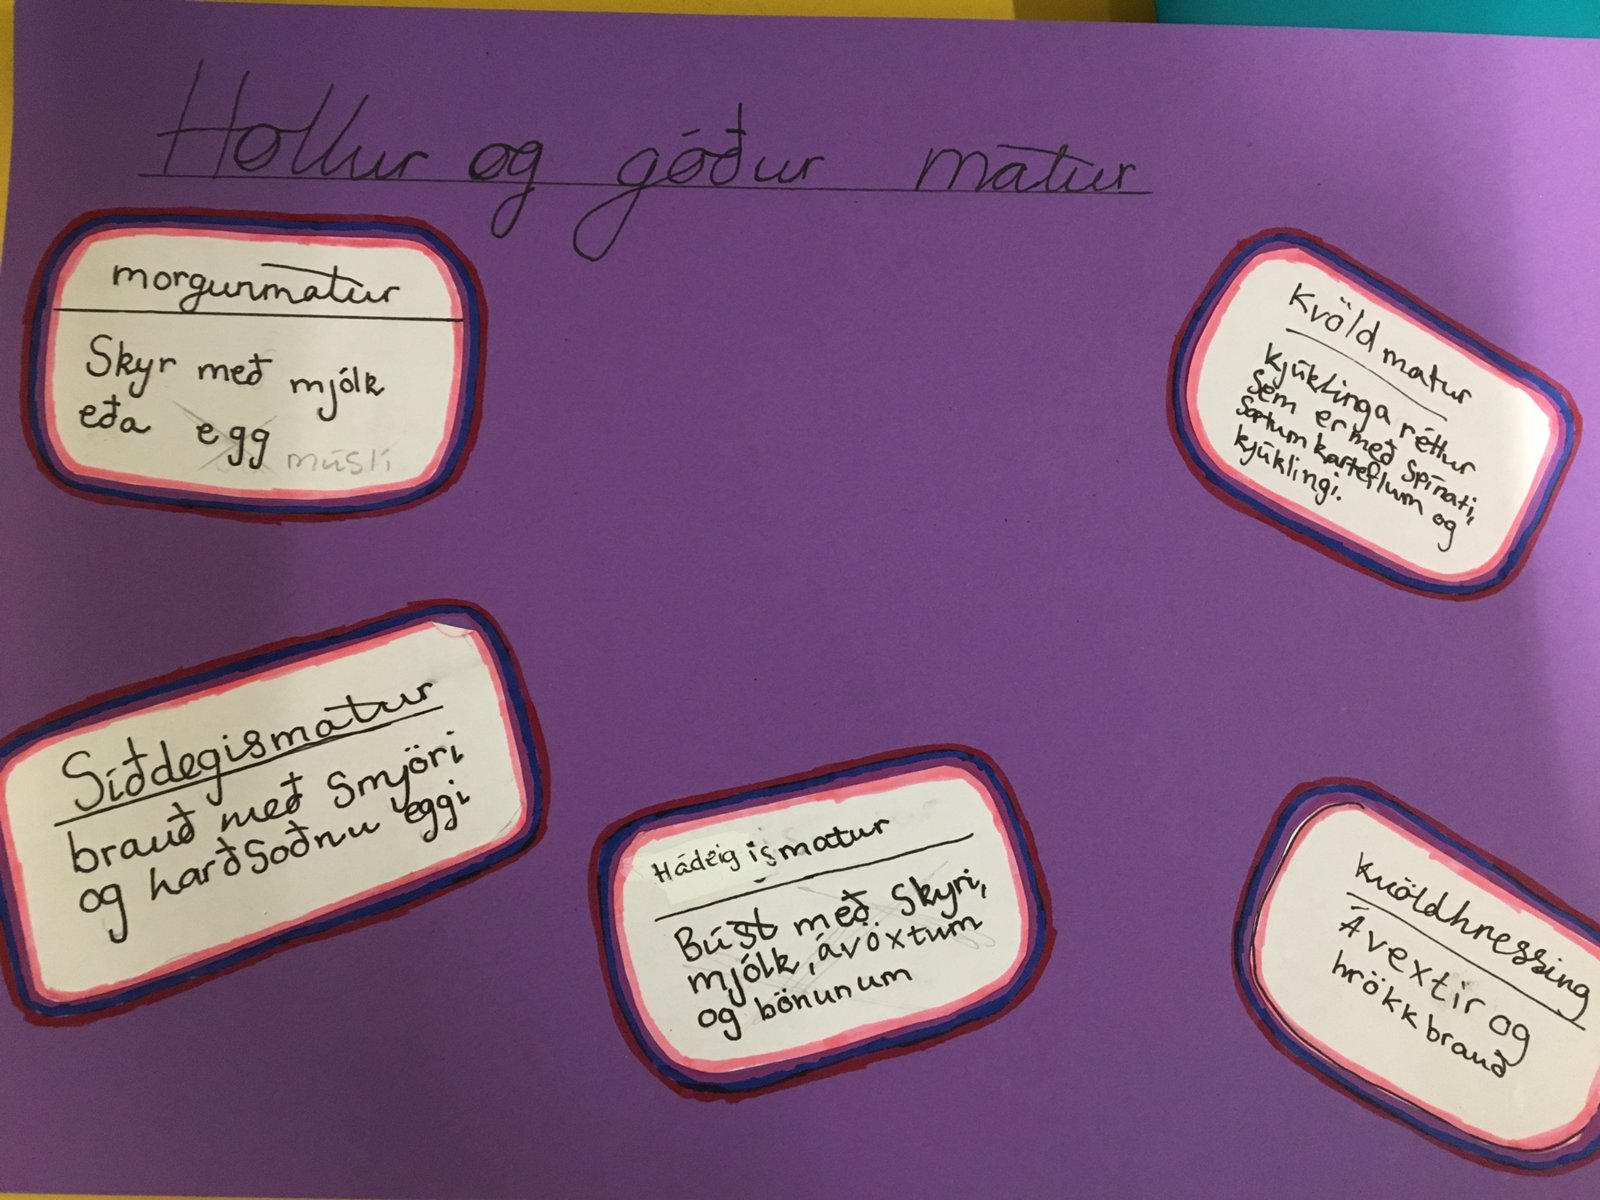 Hollur og góður matur
morgunmatur
Skyr með mjólk
eða egg múslí
Kvöldmatur
Kjúklinga réttur
Sem er með Spínati,
Sætum karteflum og
kjúklingi.
Síðdegismatur
brauð með Smjöri
og harðsoðnu eggi
Hádeigismatur
Búst með Skyri,
mjólk, ávöxtum
og bönunum
Kvöldhressing
Ávextir og
hrökkbrauð